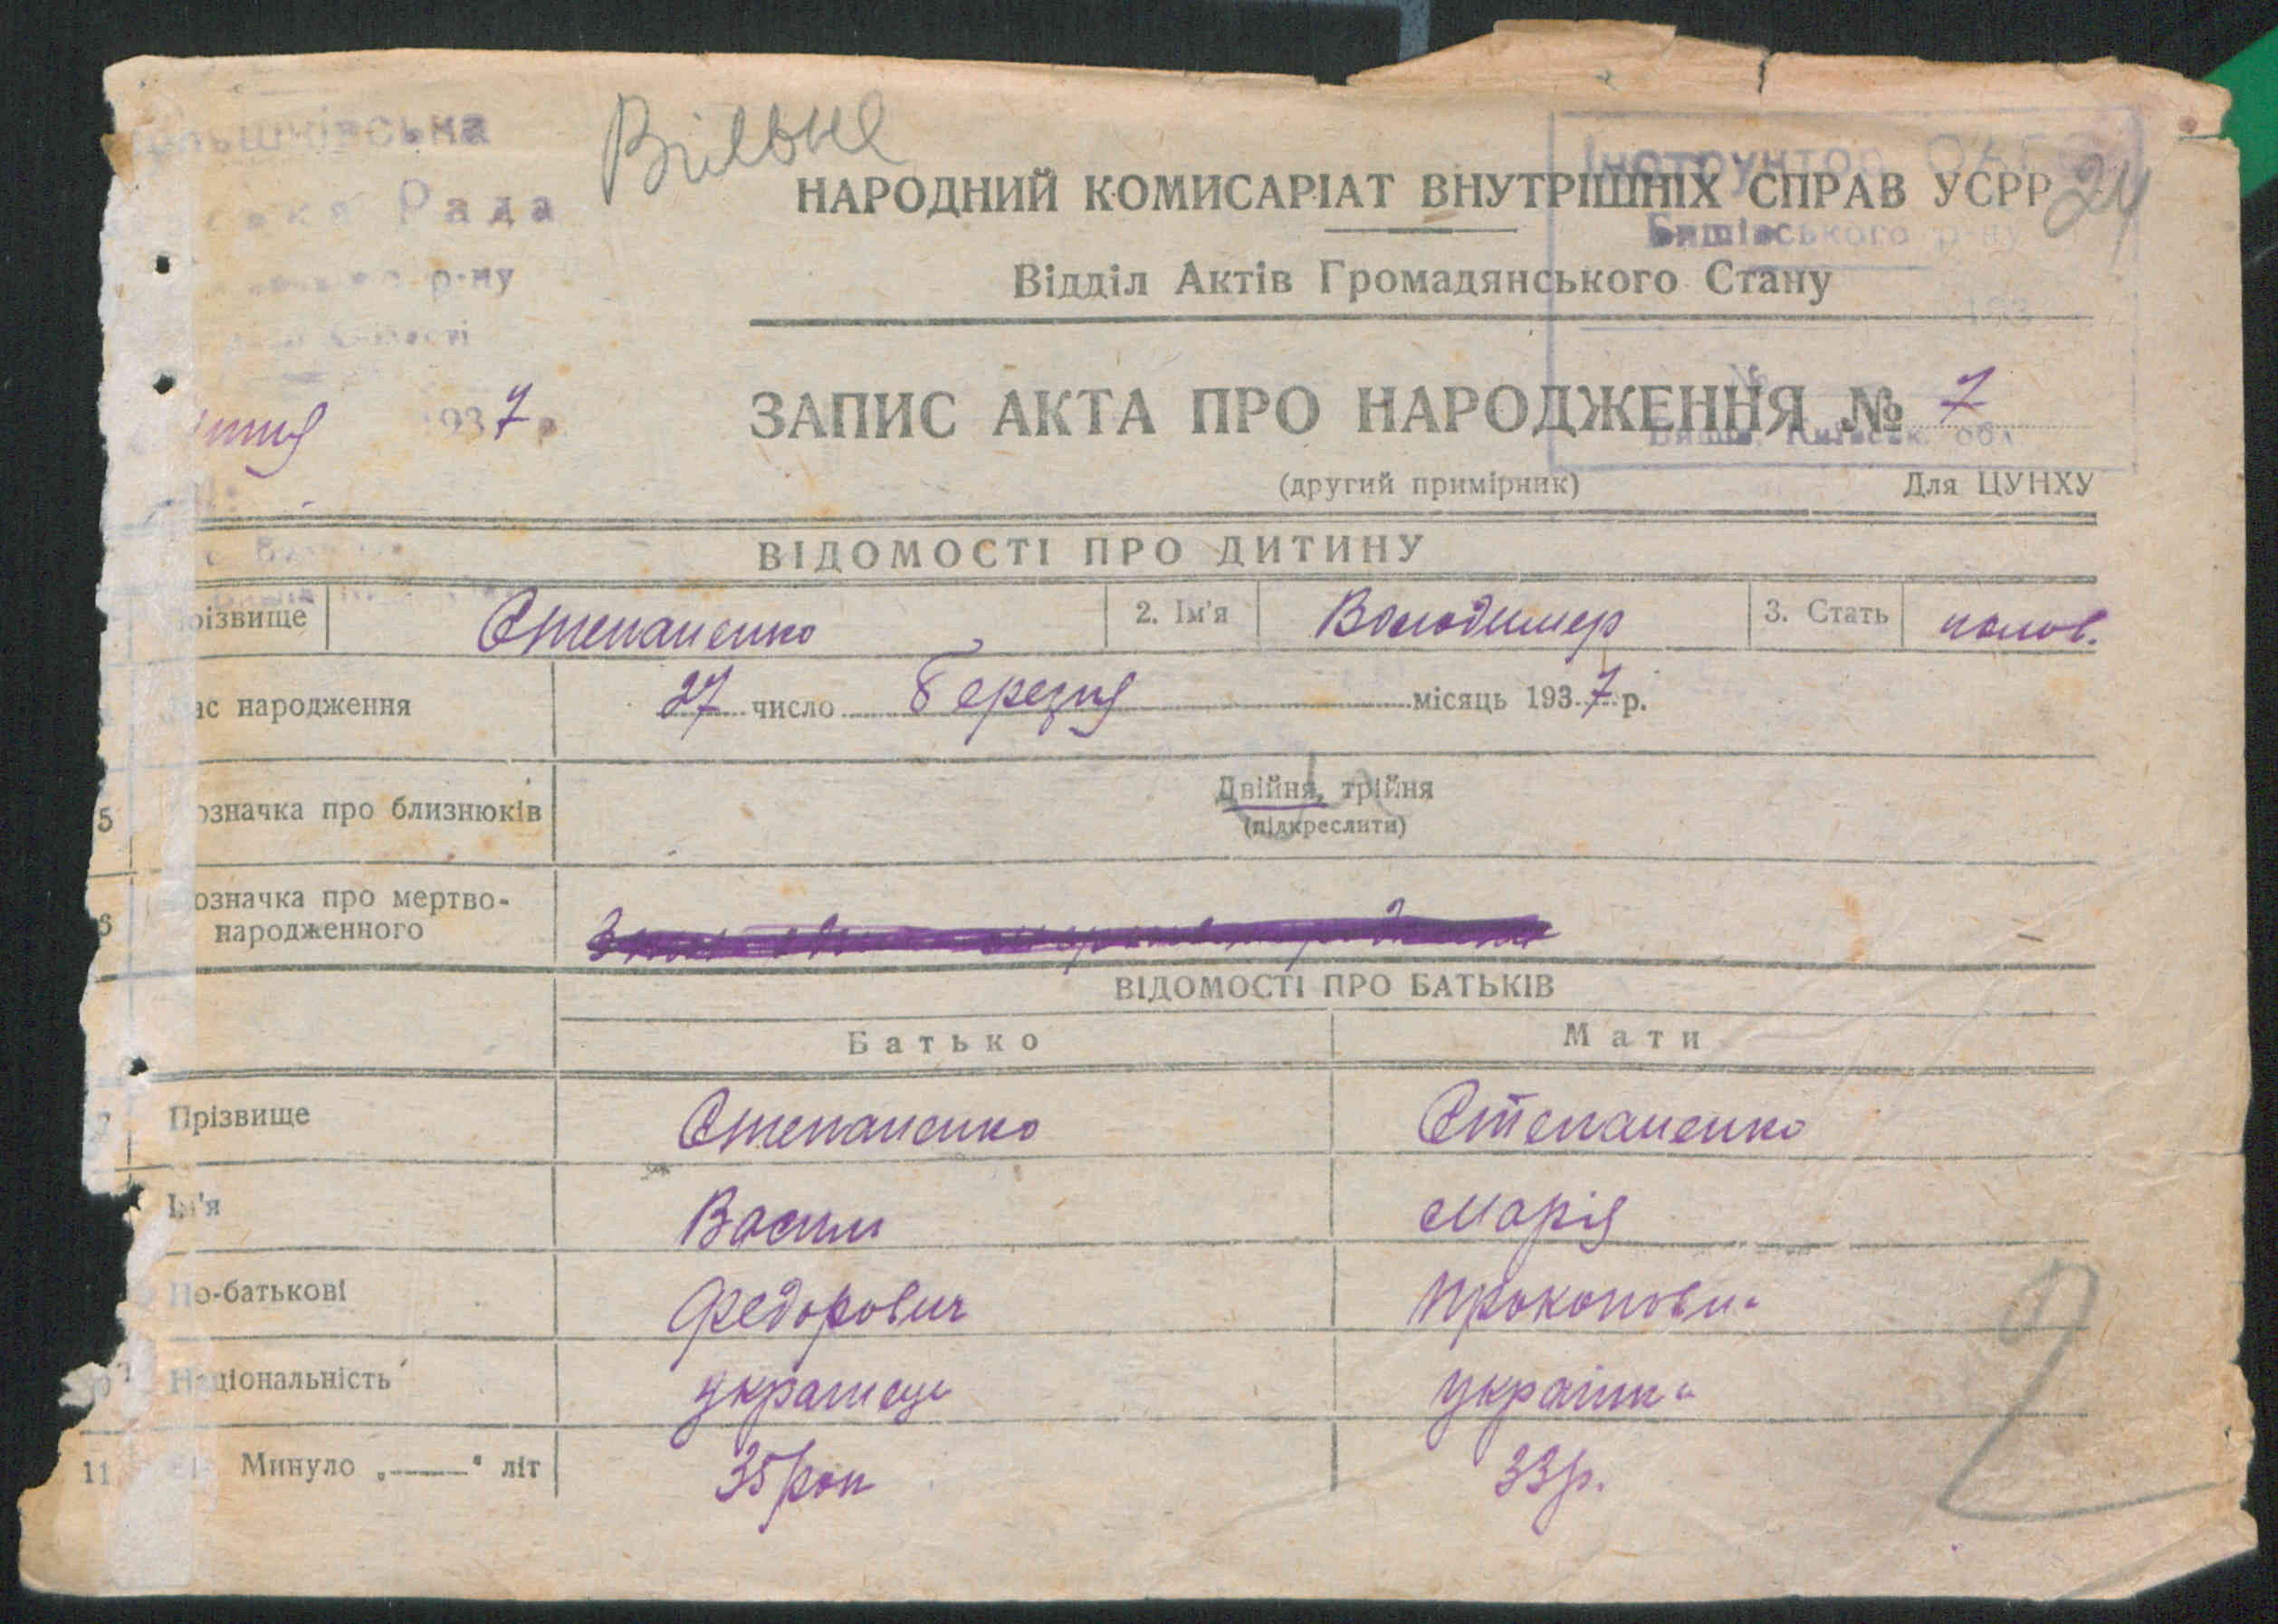 Вільне
Рада
р-ну
1937 р.
Інструктор ОАГС
Бишівського р-ну
193
№
Бишів, Київськ. обл.
24
НАРОДНИЙ КОМИСАРІАТ ВНУТРІШНІХ СПРАВ УСРР
Відділ Актів Громадянського Стану
ЗАПИС АКТА ПРО НАРОДЖЕННЯ № 7
(другий примірник) Для ЦУНХУ
ВІДОМОСТІ ПРО ДИТИНУ
різвище Степаненко 2. Ім'я Володимер 3. Стать чолов.
ас народження 27 число березня місяць 1937 р.
5 означка про близнюків Двійня, трійня
(підкреслити)
6 означка про мертво-
народженного
ВІДОМОСТІ ПРО БАТЬКІВ
Батько Мати
7 Прізвище Степаненко Степаненко
Ім'я Васил Марія
По-батькові Федорович Прокопов
10 Національність українец українка
11 Минуло „——" літ 35 рок 33 р.
2